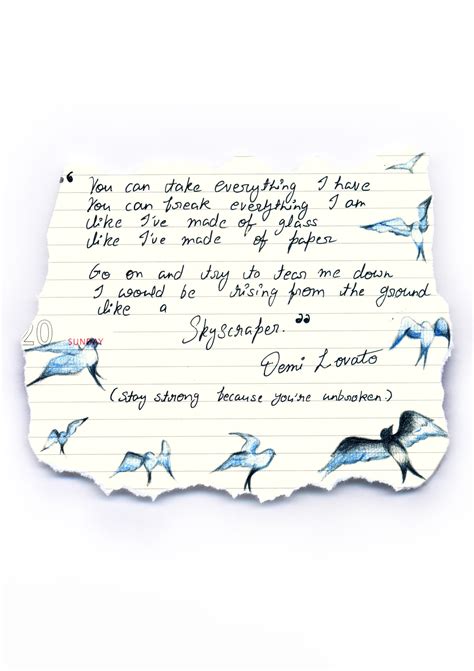 “ You can take everything I have
You can break everything I am
like I've made of glass
like I've made of paper
Go on and try to tear me down
I would be rising from the ground
like a
Skyscraper. ”
20 SUNDAY
Demi Lovato
(Stay strong because you're unbroken.)